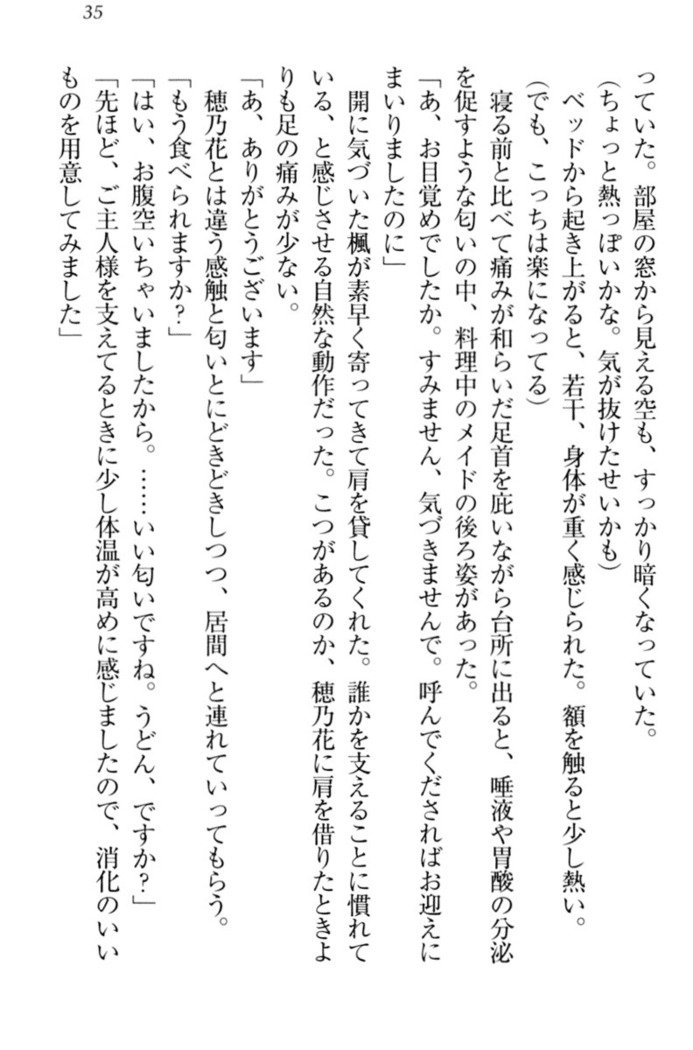 35
っていた。部屋の窓から見える空も、すっかり暗くなっていた。
（ちょっと熱っぽいかな。気が抜けたせいかも）
　ベッドから起き上がると、若干、身体が重く感じられた。額を触ると少し熱い。
（でも、こっちは楽になってる）
　寝る前と比べて痛みが和らいだ足首を庇いながら台所に出ると、唾液や胃酸の分泌
を促すような匂いの中、料理中のメイドの後ろ姿があった。
「あ、お目覚めでしたか。すみません、気づきませんで。呼んでくださればお迎えに
まいりましたのに」
　開に気づいた楓が素早く寄ってきて肩を貸してくれた。誰かを支えることに慣れて
いる、と感じさせる自然な動作だった。こつがあるのか、穂乃花に肩を借りたときよ
りも足の痛みが少ない。
「あ、ありがとうございます」
　穂乃花とは違う感触と匂いとにどきどきしつつ、居間へと連れていってもらう。
「もう食べられますか？」
「はい、お腹空いちゃいましたから。……いい匂いですね。うどん、ですか？」
「先ほど、ご主人様を支えてるときに少し体温が高めに感じましたので、消化のいい
ものを用意してみました」